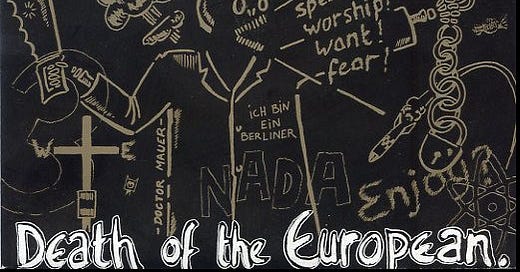 spe
worship!
want!
-fear!
ICH BIN
EIN
BERLINER
W E
-DOCTOR MAUER-
NADA
Enjoy
Death of the European.